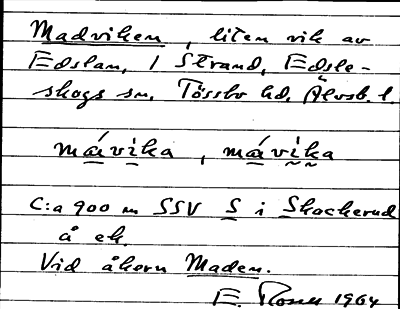 Madviken, liten vik av
Edslan, 1 Strand, Edsle-
skogs sn. Tössbo hd. Älvsb. l.
má̱vi̱ka, má̱vḭ̰ka
C:a 900 m SSV S i Skackerud
å ek.
Vid åkern Maden.
E. Rosen 1964